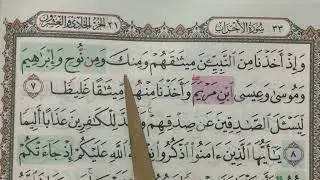 ٣٣ سُورَةُ الْأَحْزَابِ الجزء الحادي والعشرون ٢١
وَإِذْ أَخَذْنَا مِنَ النَّبِيِّينَ مِيثَاقَهُمْ وَمِنكَ وَمِن نُّوحٍ وَإِبْرَاهِيمَ
وَمُوسَى وَعِيسَى ابْنِ مَرْيَمَ وَأَخَذْنَا مِنْهُم مِّيثَاقًا غَلِيظًا ٧
لِيَسْـَٔلَ الصَّادِقِينَ عَن صِدْقِهِمْ وَأَعَدَّ لِلْكَافِرِينَ عَذَابًا أَلِيمًا
٨ يَا أَيُّهَا الَّذِينَ آمَنُوا اذْكُرُوا نِعْمَةَ اللَّهِ عَلَيْكُمْ إِذْ جَاءَتْكُمْ